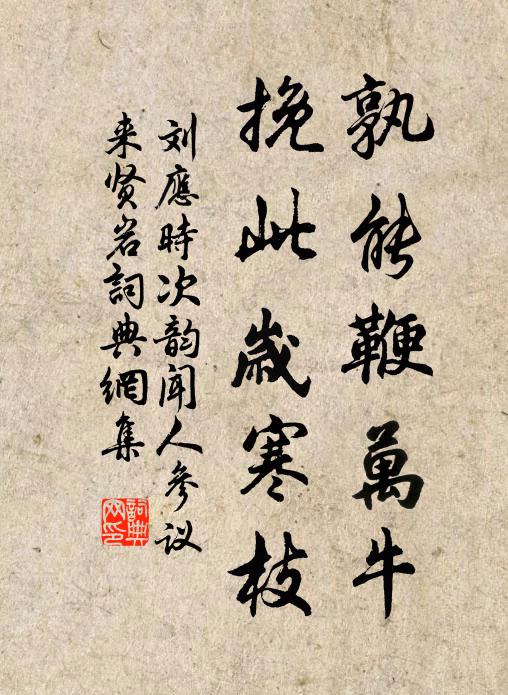 孰能鞭萬牛
挽此歲寒枝
刘應時次韵闻人參议
来贤岩詞典網集
詞典网印